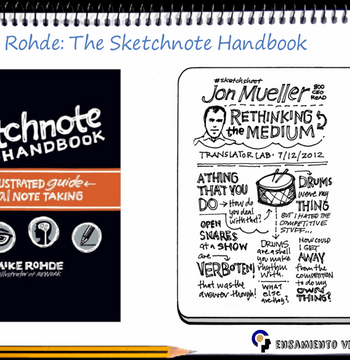 Rohde: The Sketchnote Handbook
tchnote
HANDBOOK
USTRATED guide
al NOTE TAKING
MIKE ROHDE
illustrator of REWORK
#sketchshoot
Jon Mueller
800
CEO
READ
RETHINKING
the MEDIUM
TRANSLATOR LAB • 7/12/2012
A THING
THAT YOU
DO → How do
you deal
with that?
OPEN
SNARES
at a SHOW
are
VERBOTEN
that was the
answer though!
DRUMS
are a shell
you make
rhythm
with.
WHAT
ELSE
are they?
DRUMS
were my
THING
BUT I HATED the
COMPETITIVE
STUFF...
HOW COULD
I GET
AWAY
from the
competition
to do my
OWN
THING?
ENSAMIENTO VI